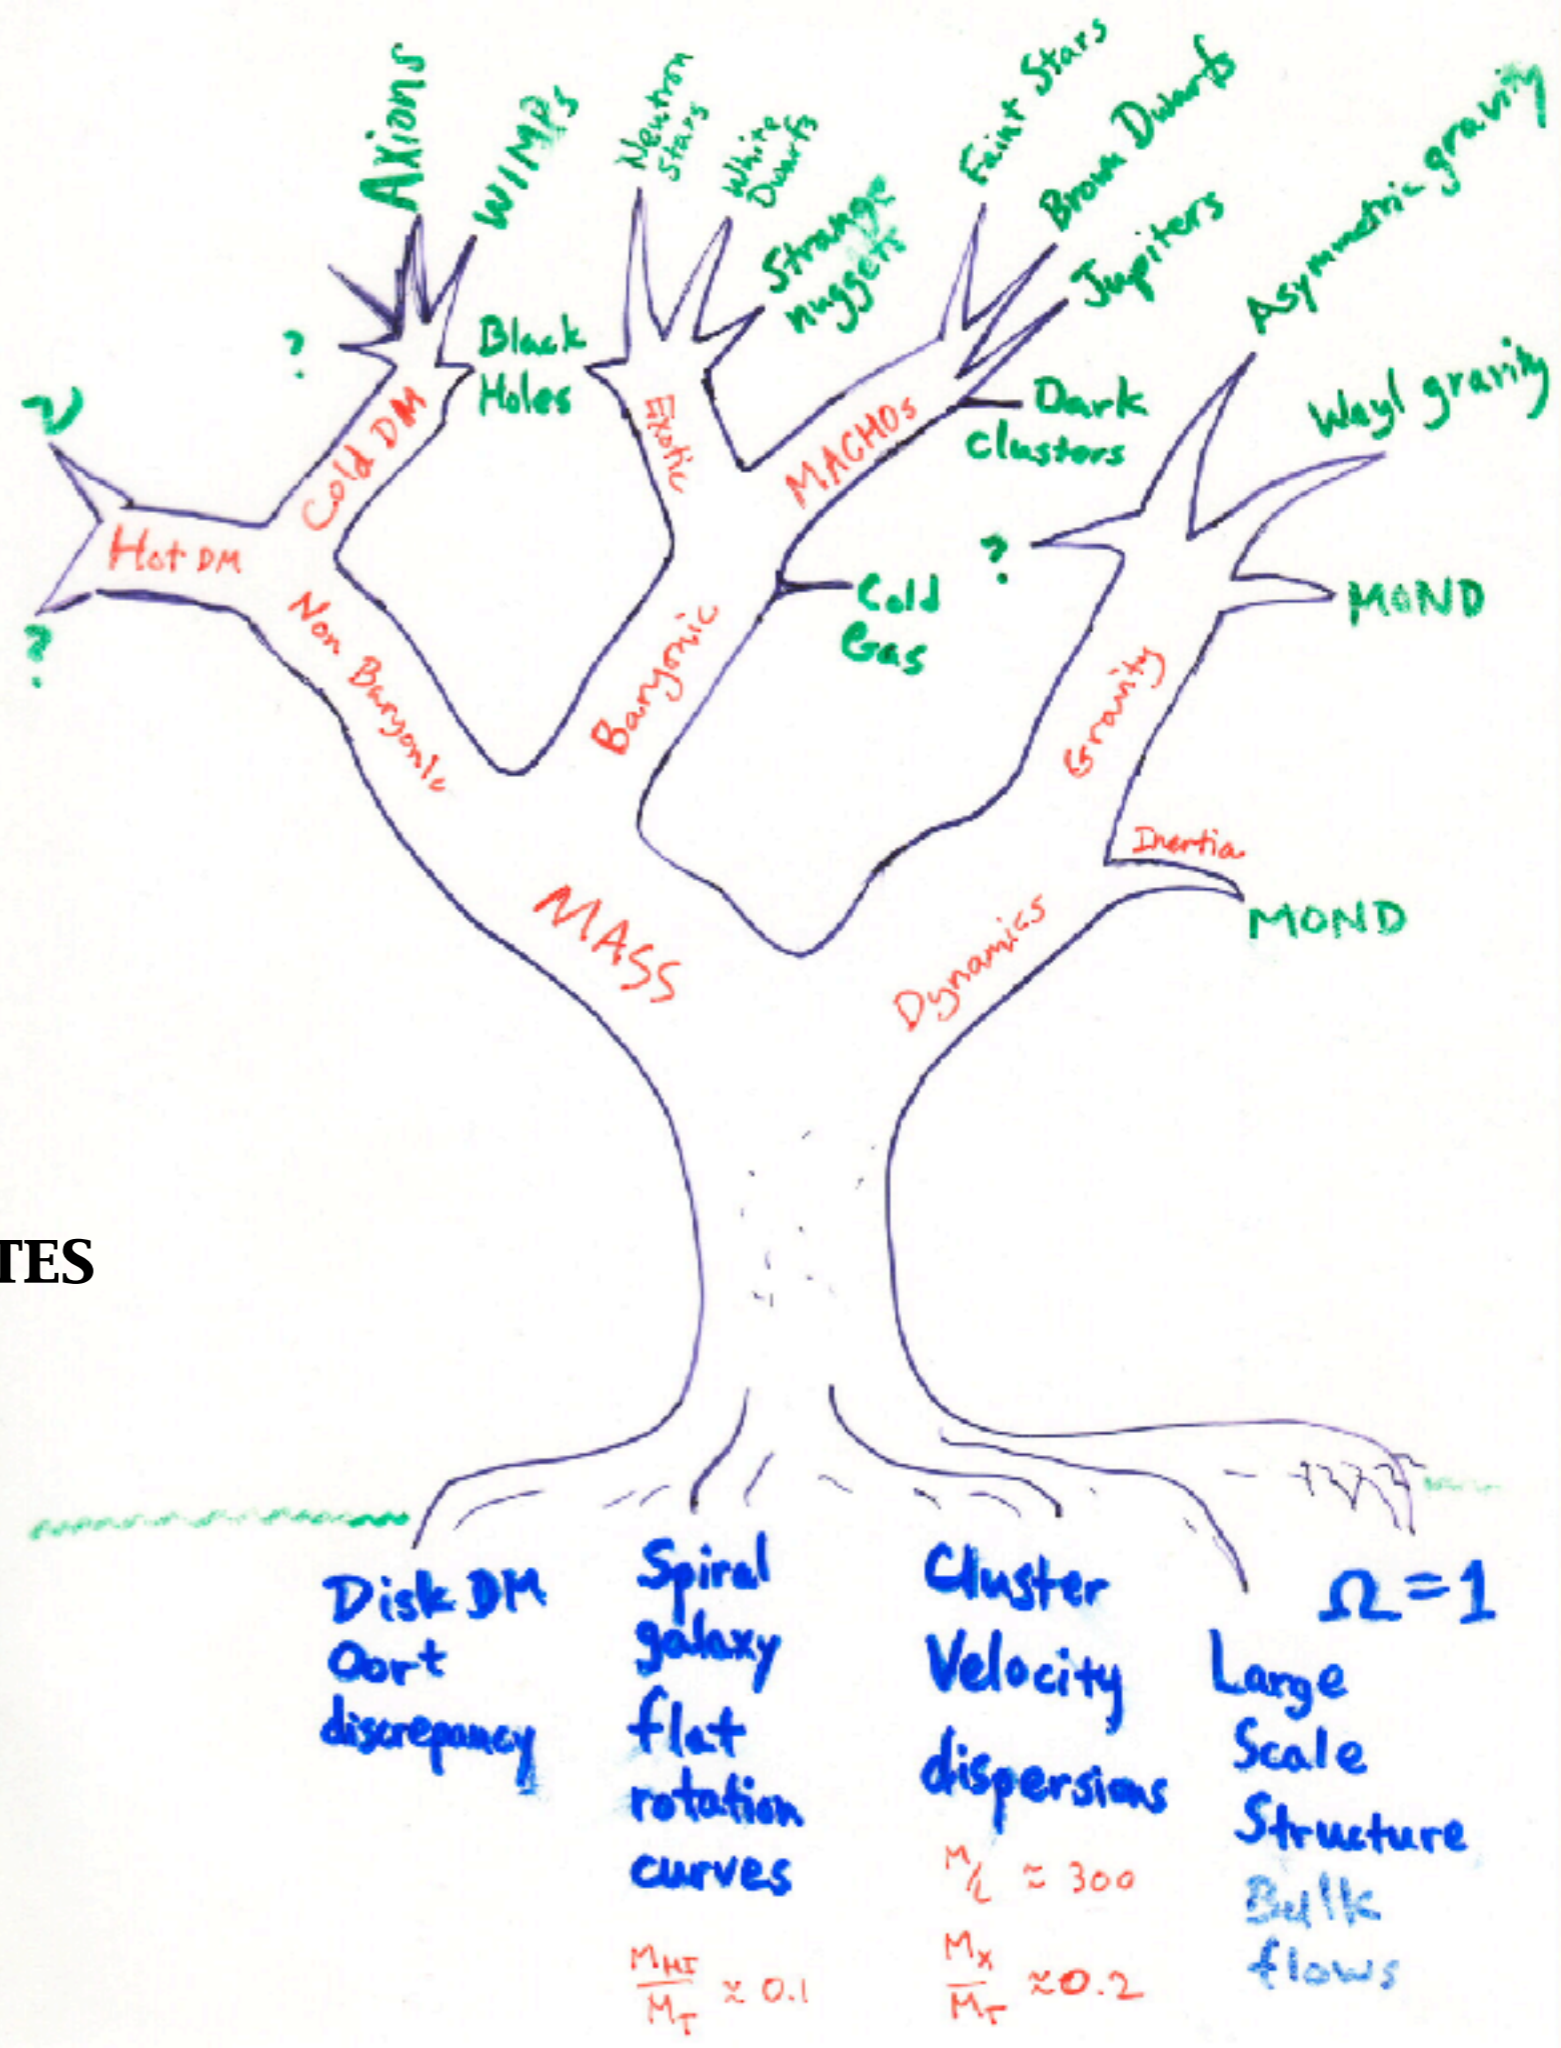 Axions
WIMPs
Neutron
Stars
White
Dwarfs
Strange
nuggets
Faint Stars
Brown Dwarfs
Jupiters
Asymmetric gravity
Weyl gravity
?
Black
Holes
ν
Cold DM
Exotic
MACHOs
Dark
clusters
Hot DM
?
?
Cold
Gas
MOND
Non Baryonic
Baryonic
Gravity
Inertia
MOND
MASS
Dynamics
TES
Disk DM
Oort
discrepancy
Spiral
galaxy
flat
rotation
curves
M_HI/M_T ≈ 0.1
Cluster
Velocity
dispersions
M/L ≈ 300
M_X/M_T ≈ 0.2
Ω = 1
Large
Scale
Structure
Bulk
flows